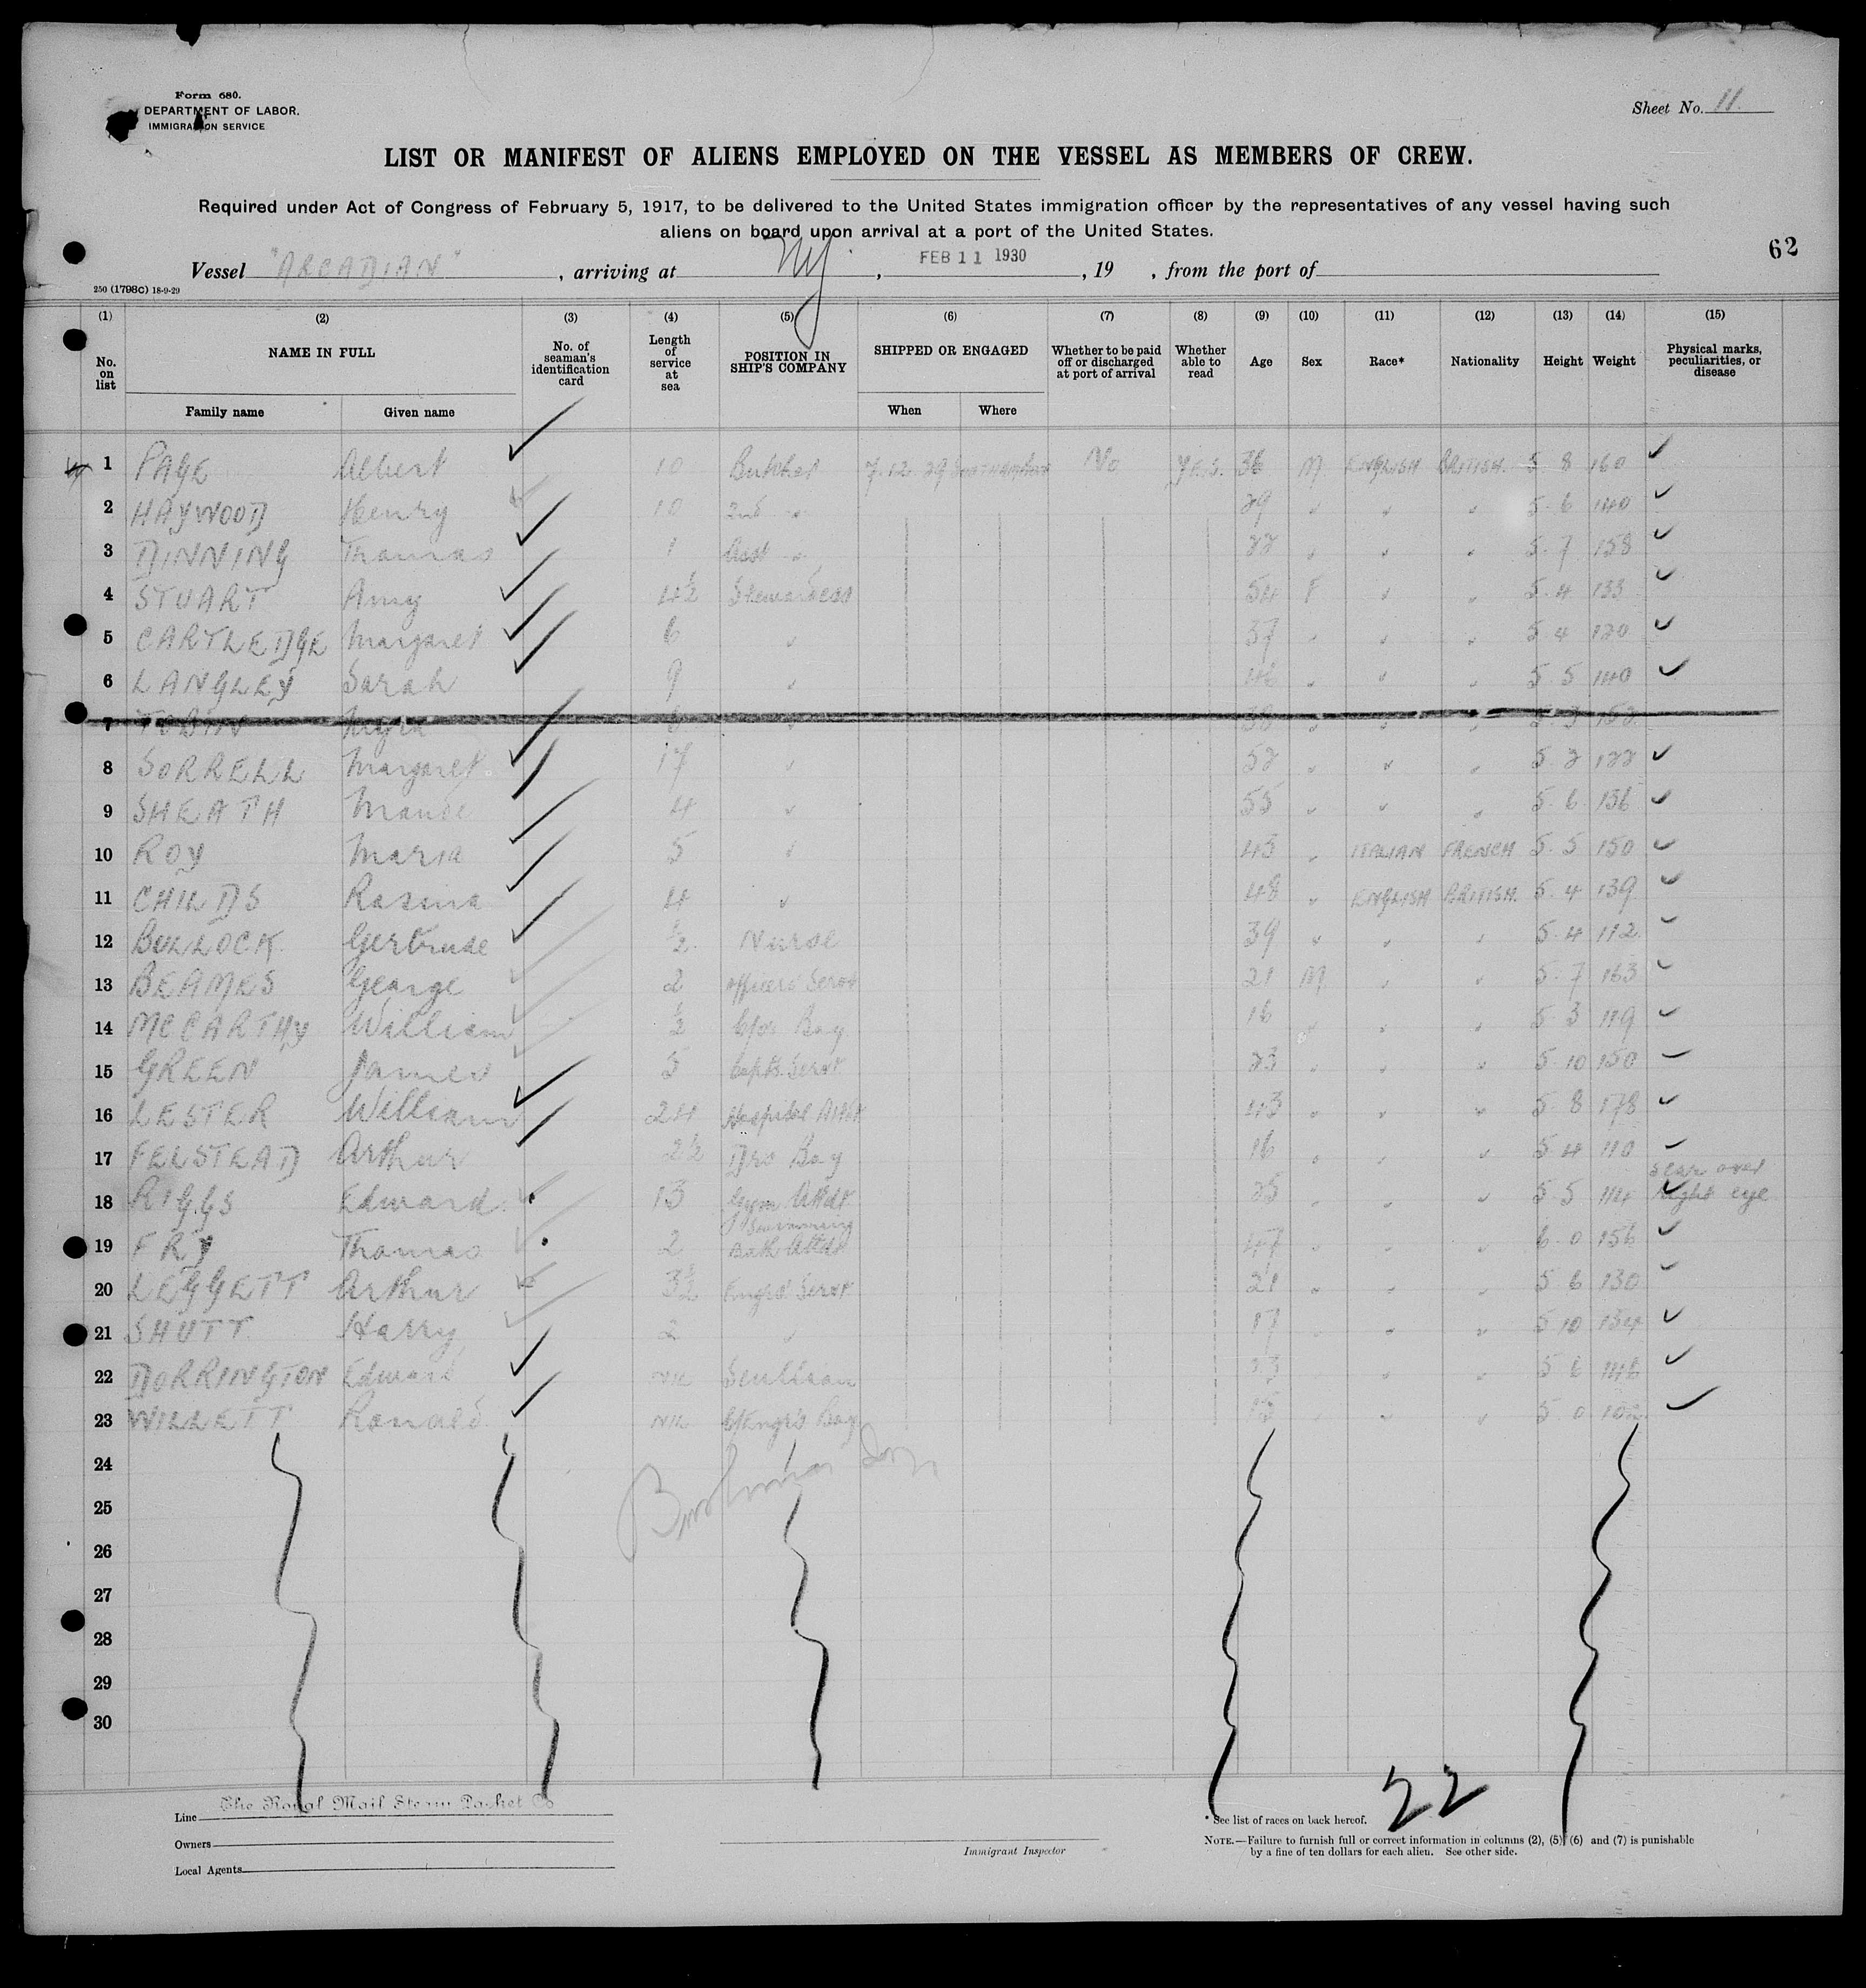 Form 680.
DEPARTMENT OF LABOR.
IMMIGRATION SERVICE
Sheet No. 11.
LIST OR MANIFEST OF ALIENS EMPLOYED ON THE VESSEL AS MEMBERS OF CREW.
Required under Act of Congress of February 5, 1917, to be delivered to the United States immigration officer by the representatives of any vessel having such
aliens on board upon arrival at a port of the United States.
62
Vessel "ARCADIAN", arriving at NY, FEB 11 1930, 19 , from the port of
250 (1798C) 18-9-29
(1) (2) (3) (4) (5) (6) (7) (8) (9) (10) (11) (12) (13) (14) (15)
No. on list NAME IN FULL No. of seaman's identification card Length of service at sea POSITION IN SHIP'S COMPANY SHIPPED OR ENGAGED Whether to be paid off or discharged at port of arrival Whether able to read Age Sex Race* Nationality Height Weight Physical marks, peculiarities, or disease
Family name Given name When Where
1 PAGE Albert 10 Butcher 7.12.29 SOUTHAMPTON No YES. 36 M ENGLISH BRITISH. 5 8 160
2 HAYWOOD Henry 10 2nd " 29 " " " 5.6 140
3 DINNING Thomas 1 Asst " 22 " " " 5.7 158
4 STUART Amy 4½ Stewardess 54 F " " 5.4 133
5 CARTLEDGE Margaret 6 " 37 " " " 5 4 120
6 LANGLEY Sarah 9 " 46 " " " 5 5 140
7 TOBIN 6 " 38 " " " 5.3 152
8 SORRELL Margaret 17 " 52 " " " 5 2 122
9 SHEATH Maude 4 " 55 " " " 5.6 136
10 ROY Maria 5 " 45 " ITALIAN FRENCH 5.5 150
11 CHILDS Rosina 4 " 48 " ENGLISH BRITISH. 5.4 139
12 BULLOCK. Gertrude ½ Nurse 39 " " " 5.4 112
13 BEAMES George 2 Officers Servt 21 M " " 5.7 163
14 MCCARTHY William ½ Boy 16 " " " 5 3 119
15 GREEN James 5 Capts Servt 23 " " " 5.10 150
16 LESTER William 24 Hospital Attdt 43 " " " 5 8 178
17 FELSTEAD Arthur 2½ Boy 16 " " " 5 4 110
18 RIGGS Edward. 13 Gym Attdt 25 " " " 5.5 114 Scar over right eye
19 FRY Thomas 2 Swimming Bath Attdt 47 " " " 6.0 156
20 LEGGETT Arthur 3½ Engrs Servt 21 " " " 5 6 130
21 SHUTT Harry 2 " 17 " " " 5 10 134
22 DORRINGTON Edward NIL Scullion 23 " " 5.6 146
23 WILLETT Ronald NIL C/Engrs Boy 15 " " " 5.0
24
25
26
27
28
29
30
22
Line The Royal Mail Steam Packet Co
Owners
Local Agents
Immigrant Inspector
* See list of races on back hereof.
NOTE.—Failure to furnish full or correct information in columns (2), (5) (6) and (7) is punishable
by a fine of ten dollars for each alien. See other side.